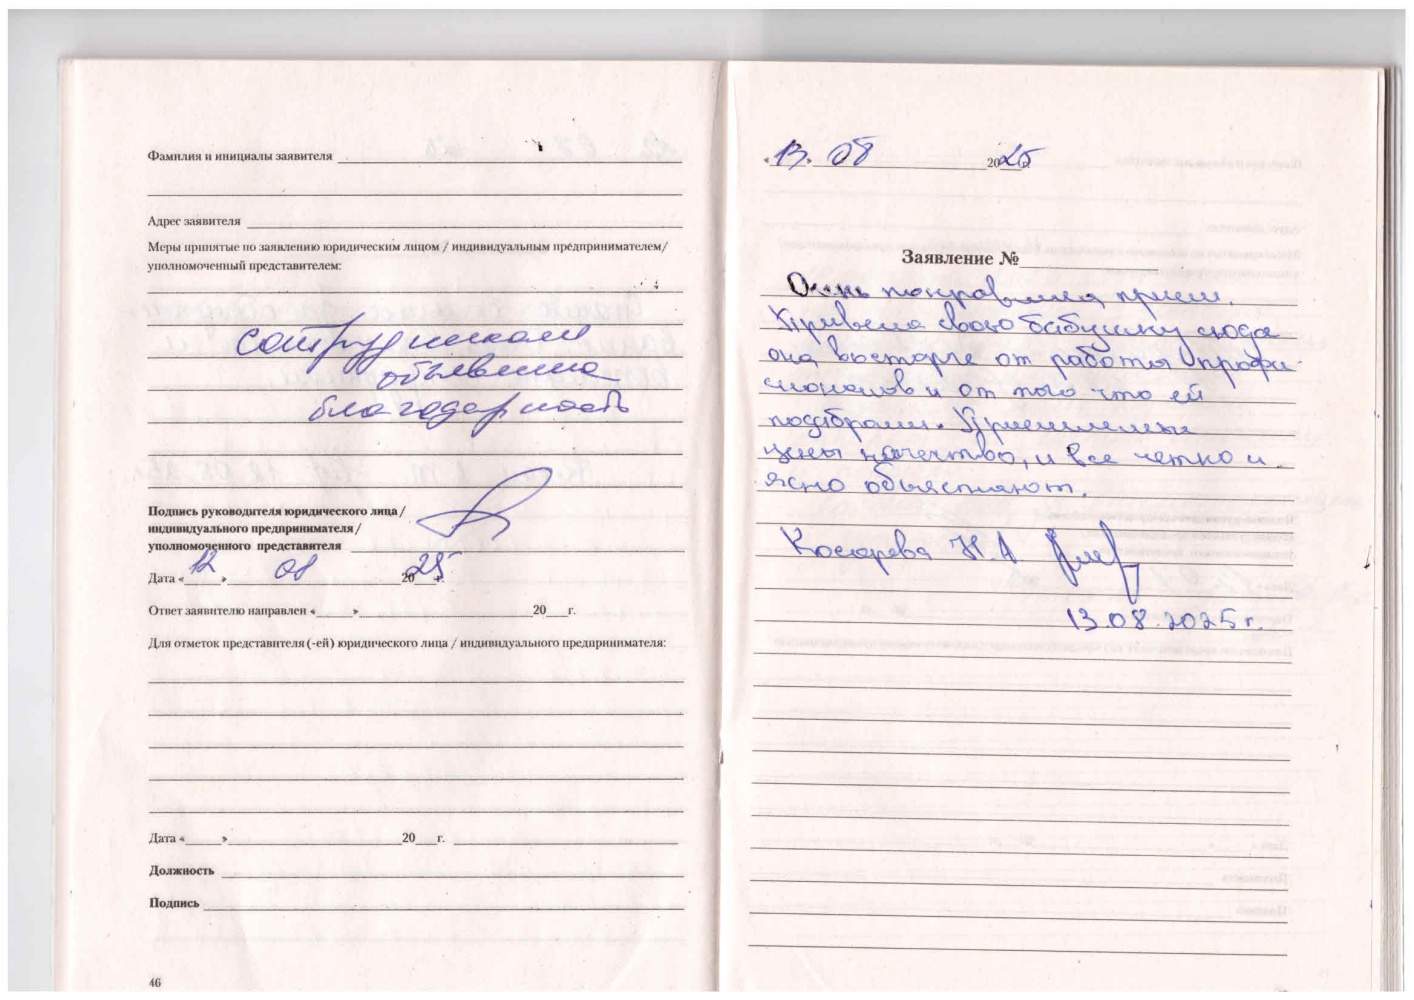 Фамилия и инициалы заявителя
Адрес заявителя
Меры принятые по заявлению юридическим лицом / индивидуальным предпринимателем/
уполномоченный представителем:
сотрудникам
объявлена
благодарность
Подпись руководителя юридического лица /
индивидуального предпринимателя /
уполномоченного представителя
Дата «12» 08 2025 г.
Ответ заявителю направлен «____» 20___г.
Для отметок представителя (-ей) юридического лица / индивидуального предпринимателя:
Дата «____» 20___г.
Должность
Подпись
46
«13» 08 2025 г.
Заявление №
Очень понравился прием.
Привела свою бабушку сюда
она восторге от работы профи-
сионалов и от того что ей
подобрали. Приемлемые
цены качество, и все четко и
ясно объясняют.
Косарева Н.А
13.08.2025г.